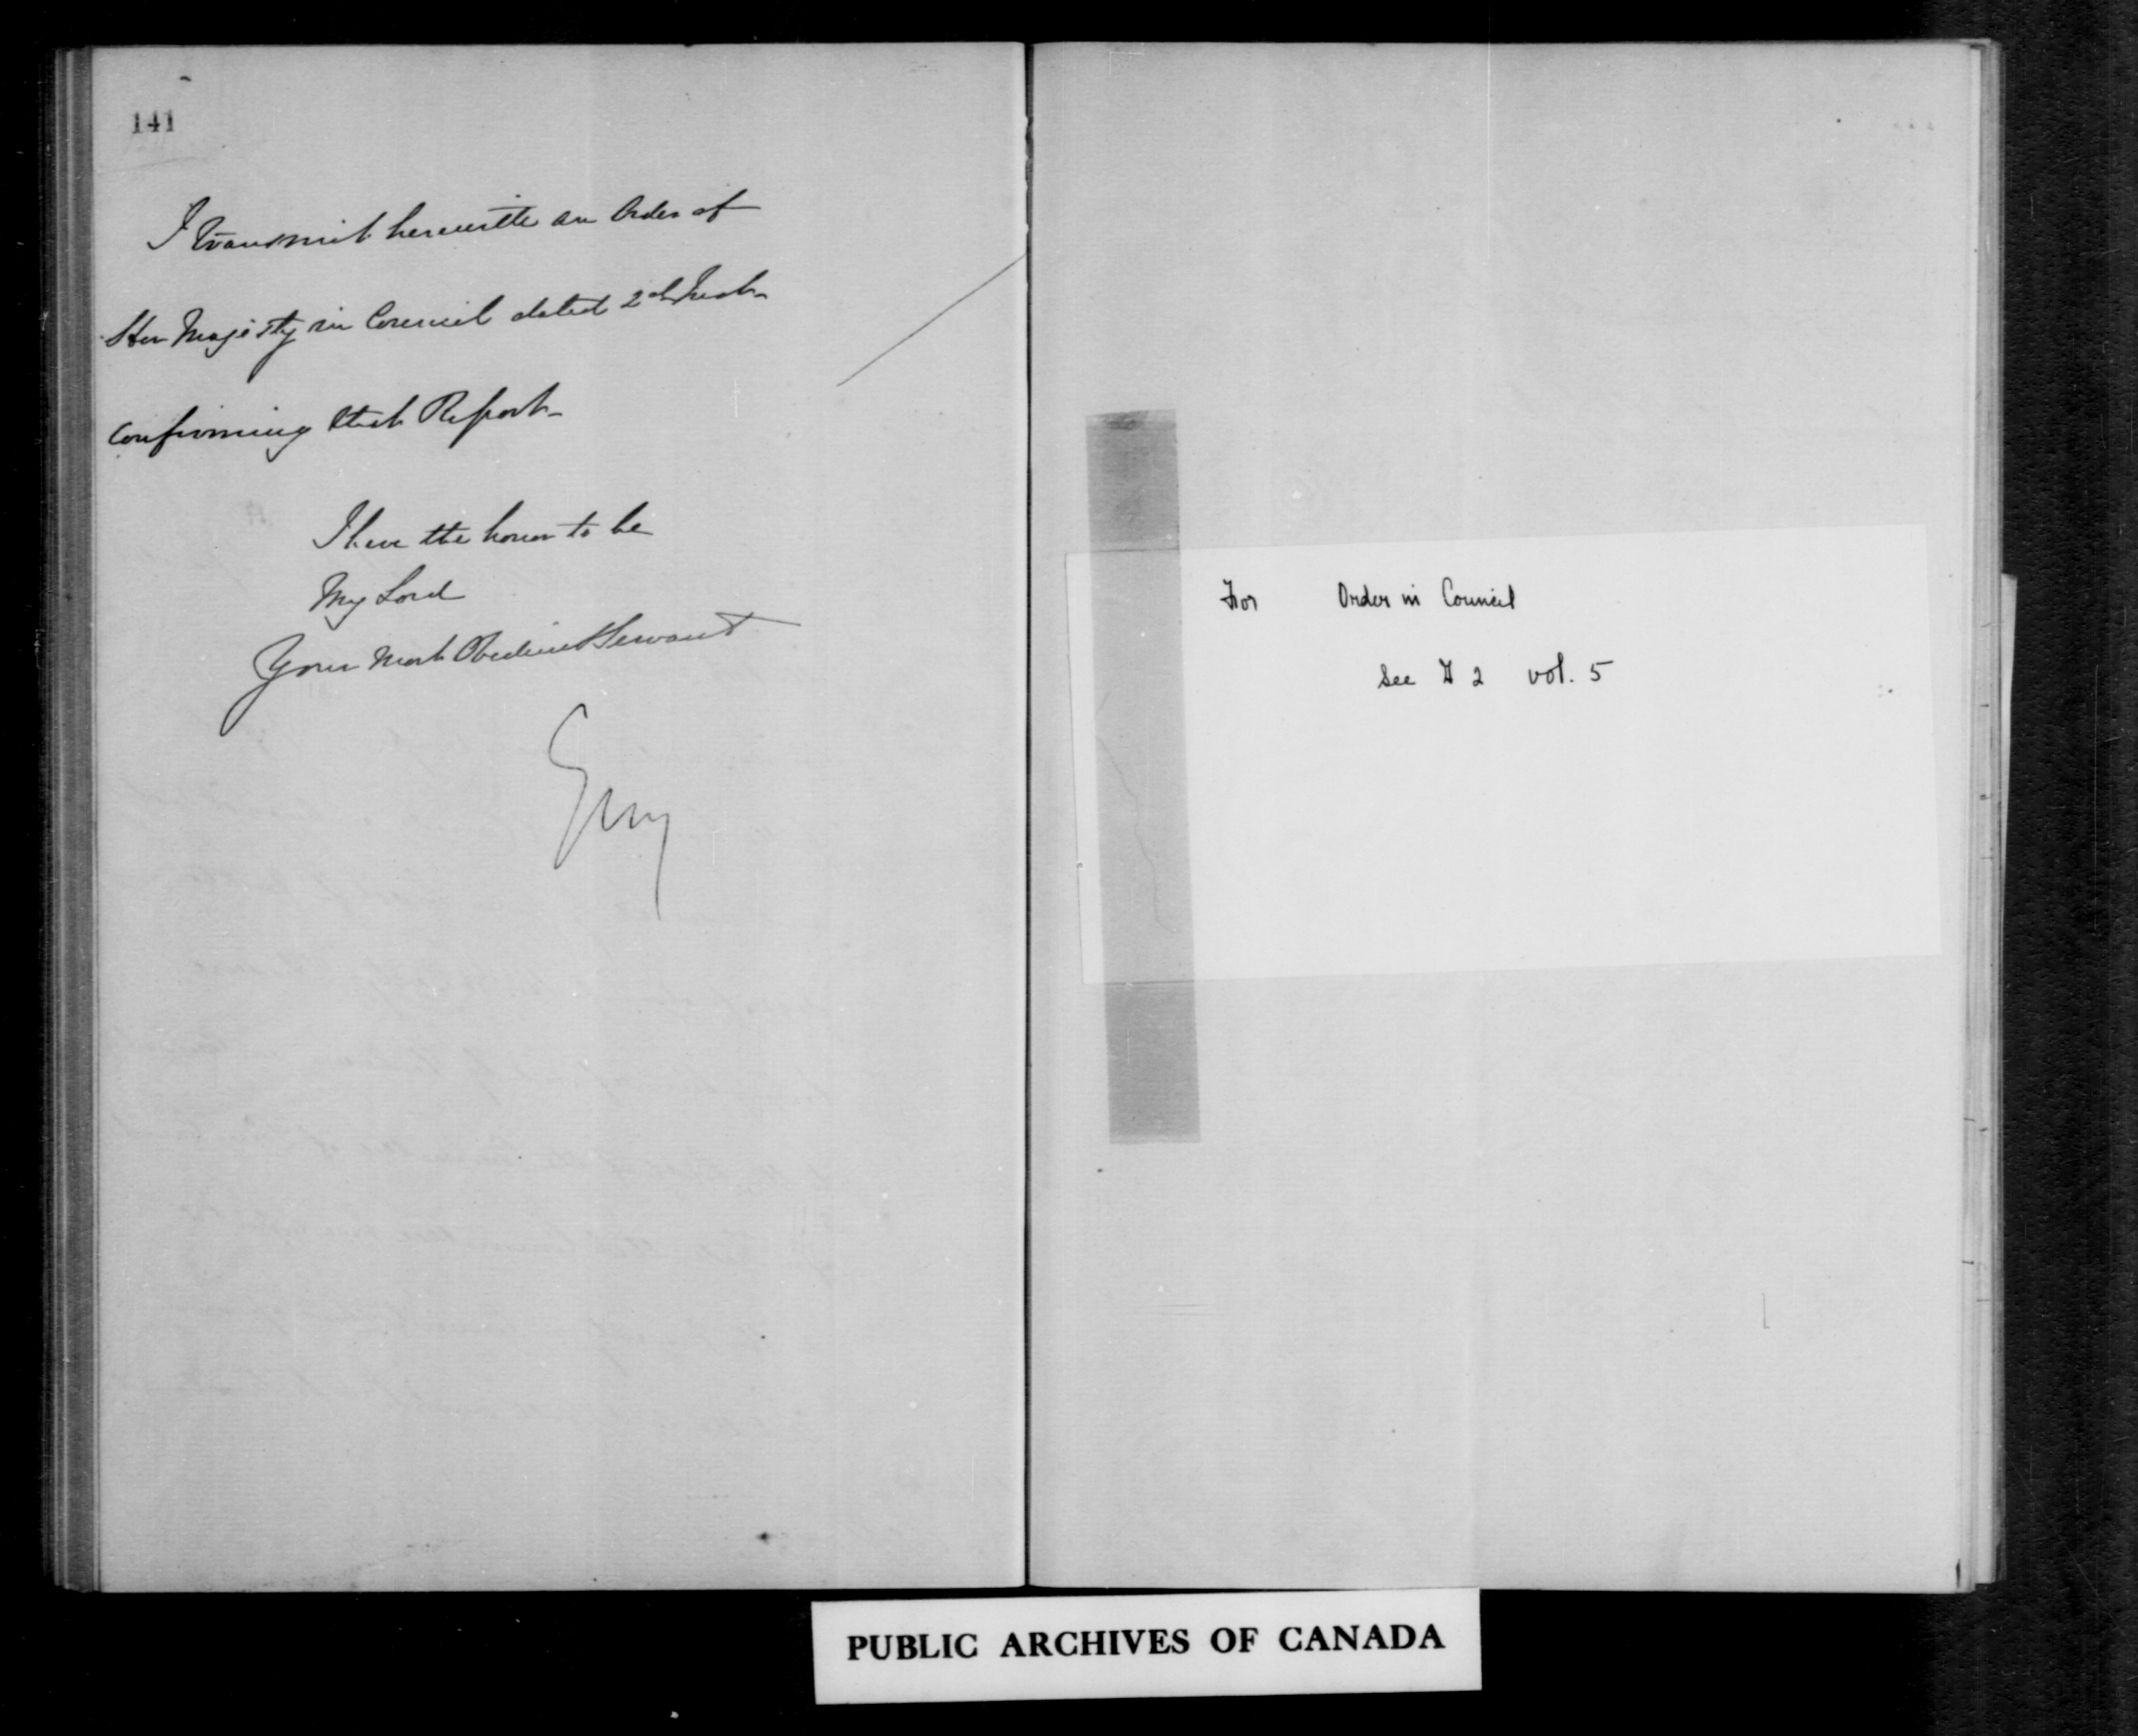 141
I transmit herewith an Order of
Her Majesty in Council dated 2d Inst.
confirming that Report.
I have the honor to be
My Lord
Your Most Obedient Servant
Grey
For Order in Council
See G 2 vol. 5
PUBLIC ARCHIVES OF CANADA